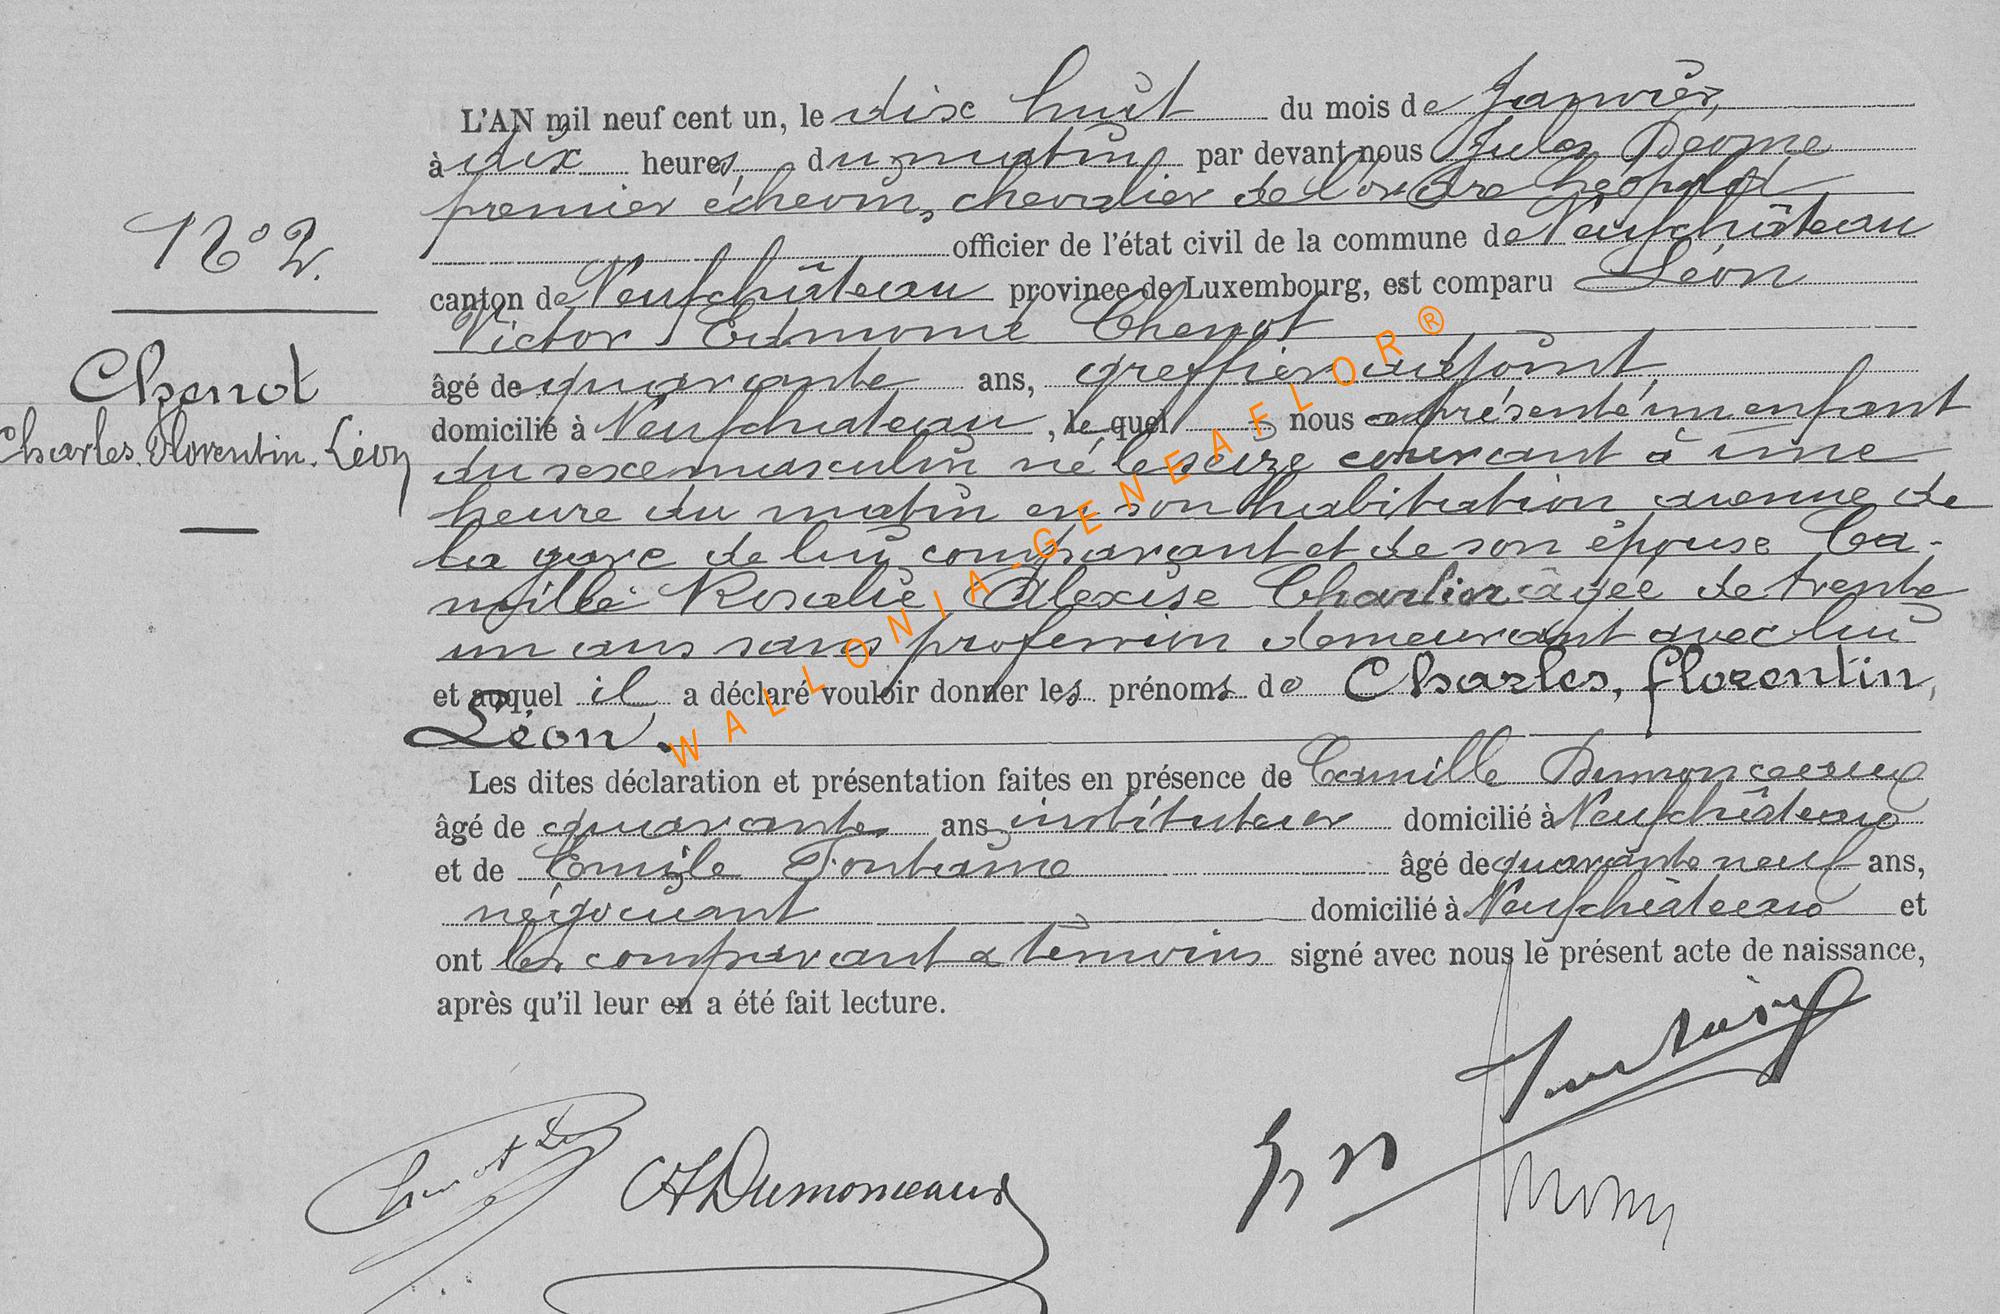 N° 2.
Chenot
Charles. Florentin. Léon
L'AN mil neuf cent un, le dix huit du mois de Janvier,
à dix heures, du matin, par devant nous Jules
premier échevin, chevalier de l'ordre Léopold
officier de l'état civil de la commune de Neufchâteau
canton de Neufchâteau province de Luxembourg, est comparu Léon
Victor Edmond Chenot
âgé de quarante ans, greffier adjoint,
domicilié à Neufchateau, le quel nous a présenté un enfant
du sexe masculin né le seize courant à une
heure du matin en son habitation avenue de
la gare de lui comparant et de son épouse Ca-
mille Rosalie Alexise Charlier âgée de trente
un ans sans profession demeurant avec lui
et auquel il a déclaré vouloir donner les prénoms de Charles, florentin,
Léon.
Les dites déclaration et présentation faites en présence de Camille Dumonceaux
âgé de quarante ans instituteur domicilié à Neufchâteau
et de Emile Fontaine âgé de quarante neuf ans,
négociant domicilié à Neufchâteau et
ont les comparant & témoins signé avec nous le présent acte de naissance,
après qu'il leur en a été fait lecture.
Fontaine
Dumonceaux
WALLONIA-GENEAFLOR®